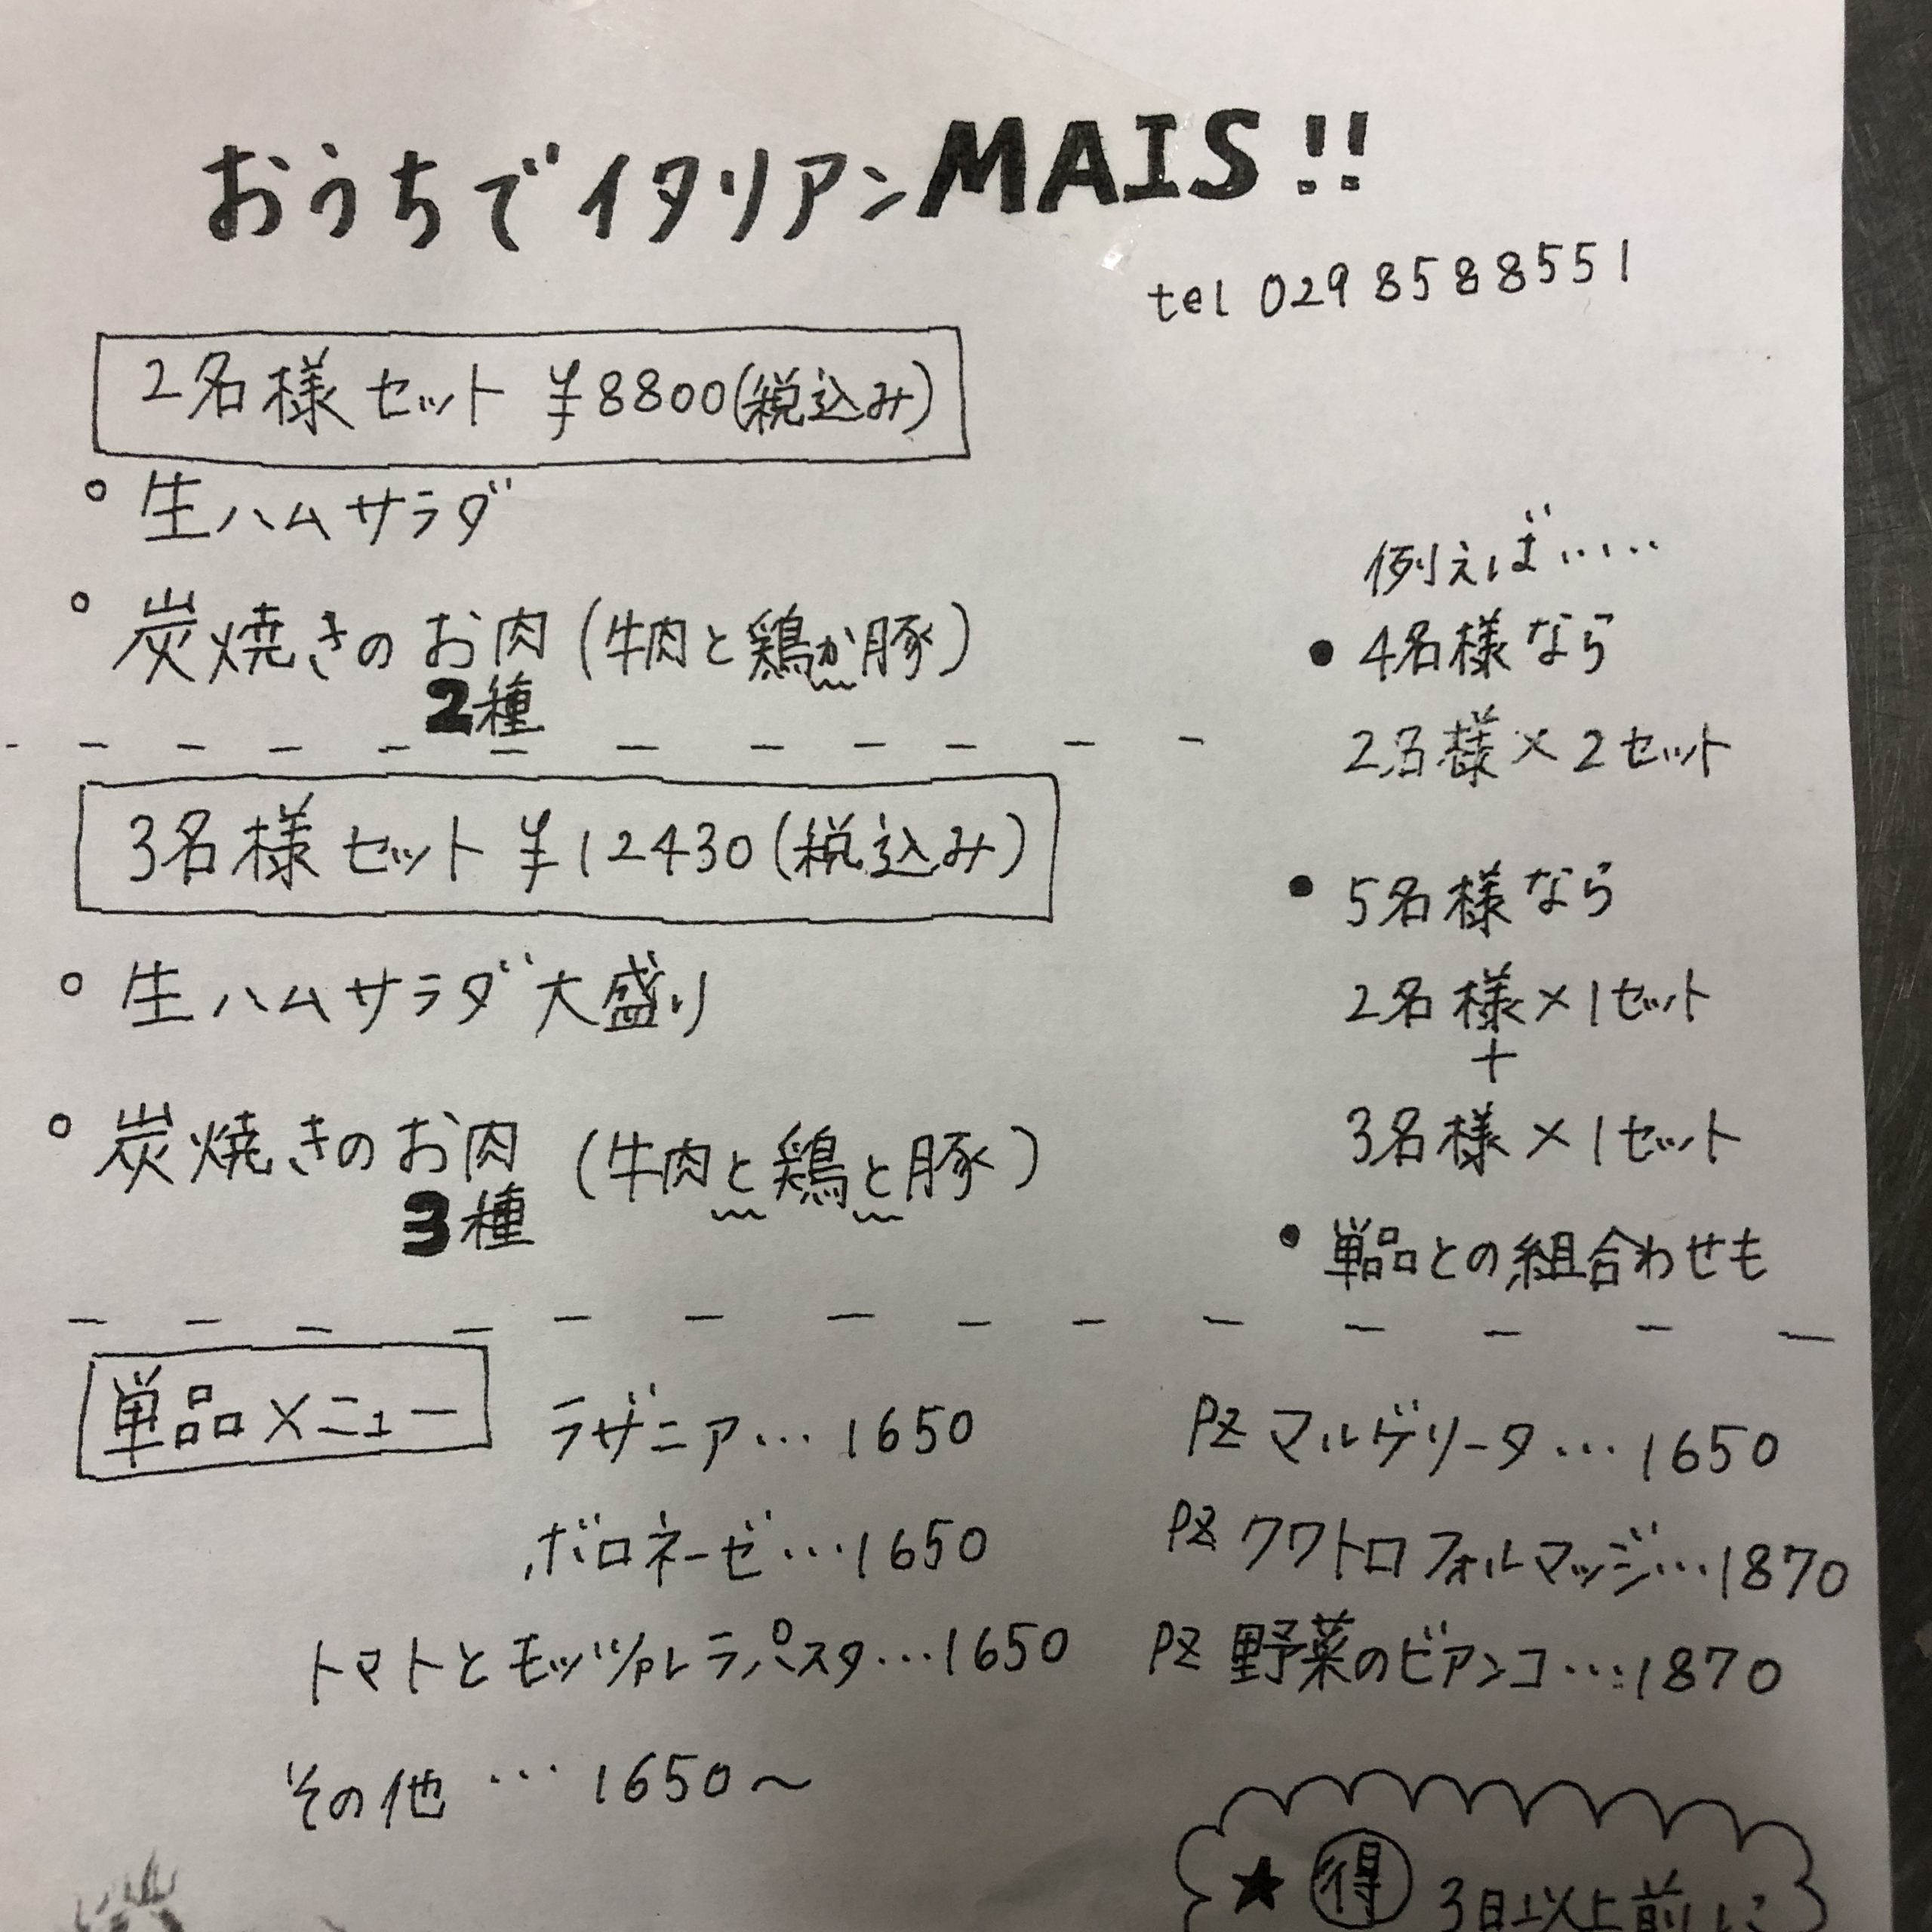 おうちでイタリアンMAIS!!
tel 029 858 8551
2名様セット ¥8800(税込み)
○ 生ハムサラダ
○ 炭焼きのお肉(牛肉と鶏か豚)
2種
3名様セット ¥12430(税込み)
○ 生ハムサラダ大盛り
○ 炭焼きのお肉(牛肉と鶏と豚)
3種
例えば……
● 4名様なら
2名様×2セット
● 5名様なら
2名様×1セット
+
3名様×1セット
● 単品との組合わせも
単品メニュー
ラザニア…1650
ボロネーゼ…1650
トマトとモッツァレラパスタ…1650
その他…1650〜
PZ マルゲリータ…1650
PZ クワトロフォルマッジ…1870
PZ 野菜のビアンコ…1870
★ 得 3日以上前に